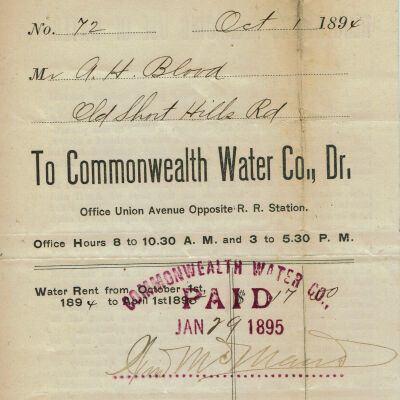 No. 72 Oct 1 1894
Mr A. H. Blood
Old Short Hills Rd
To Commonwealth Water Co., Dr.
Office Union Avenue Opposite R. R. Station.
Office Hours 8 to 10.30 A. M. and 3 to 5.30 P. M.
Water Rent from October 1st,
1894 to April 1st 1895 $ 17 00
COMMONWEALTH WATER CO.,
PAID
JAN 29 1895